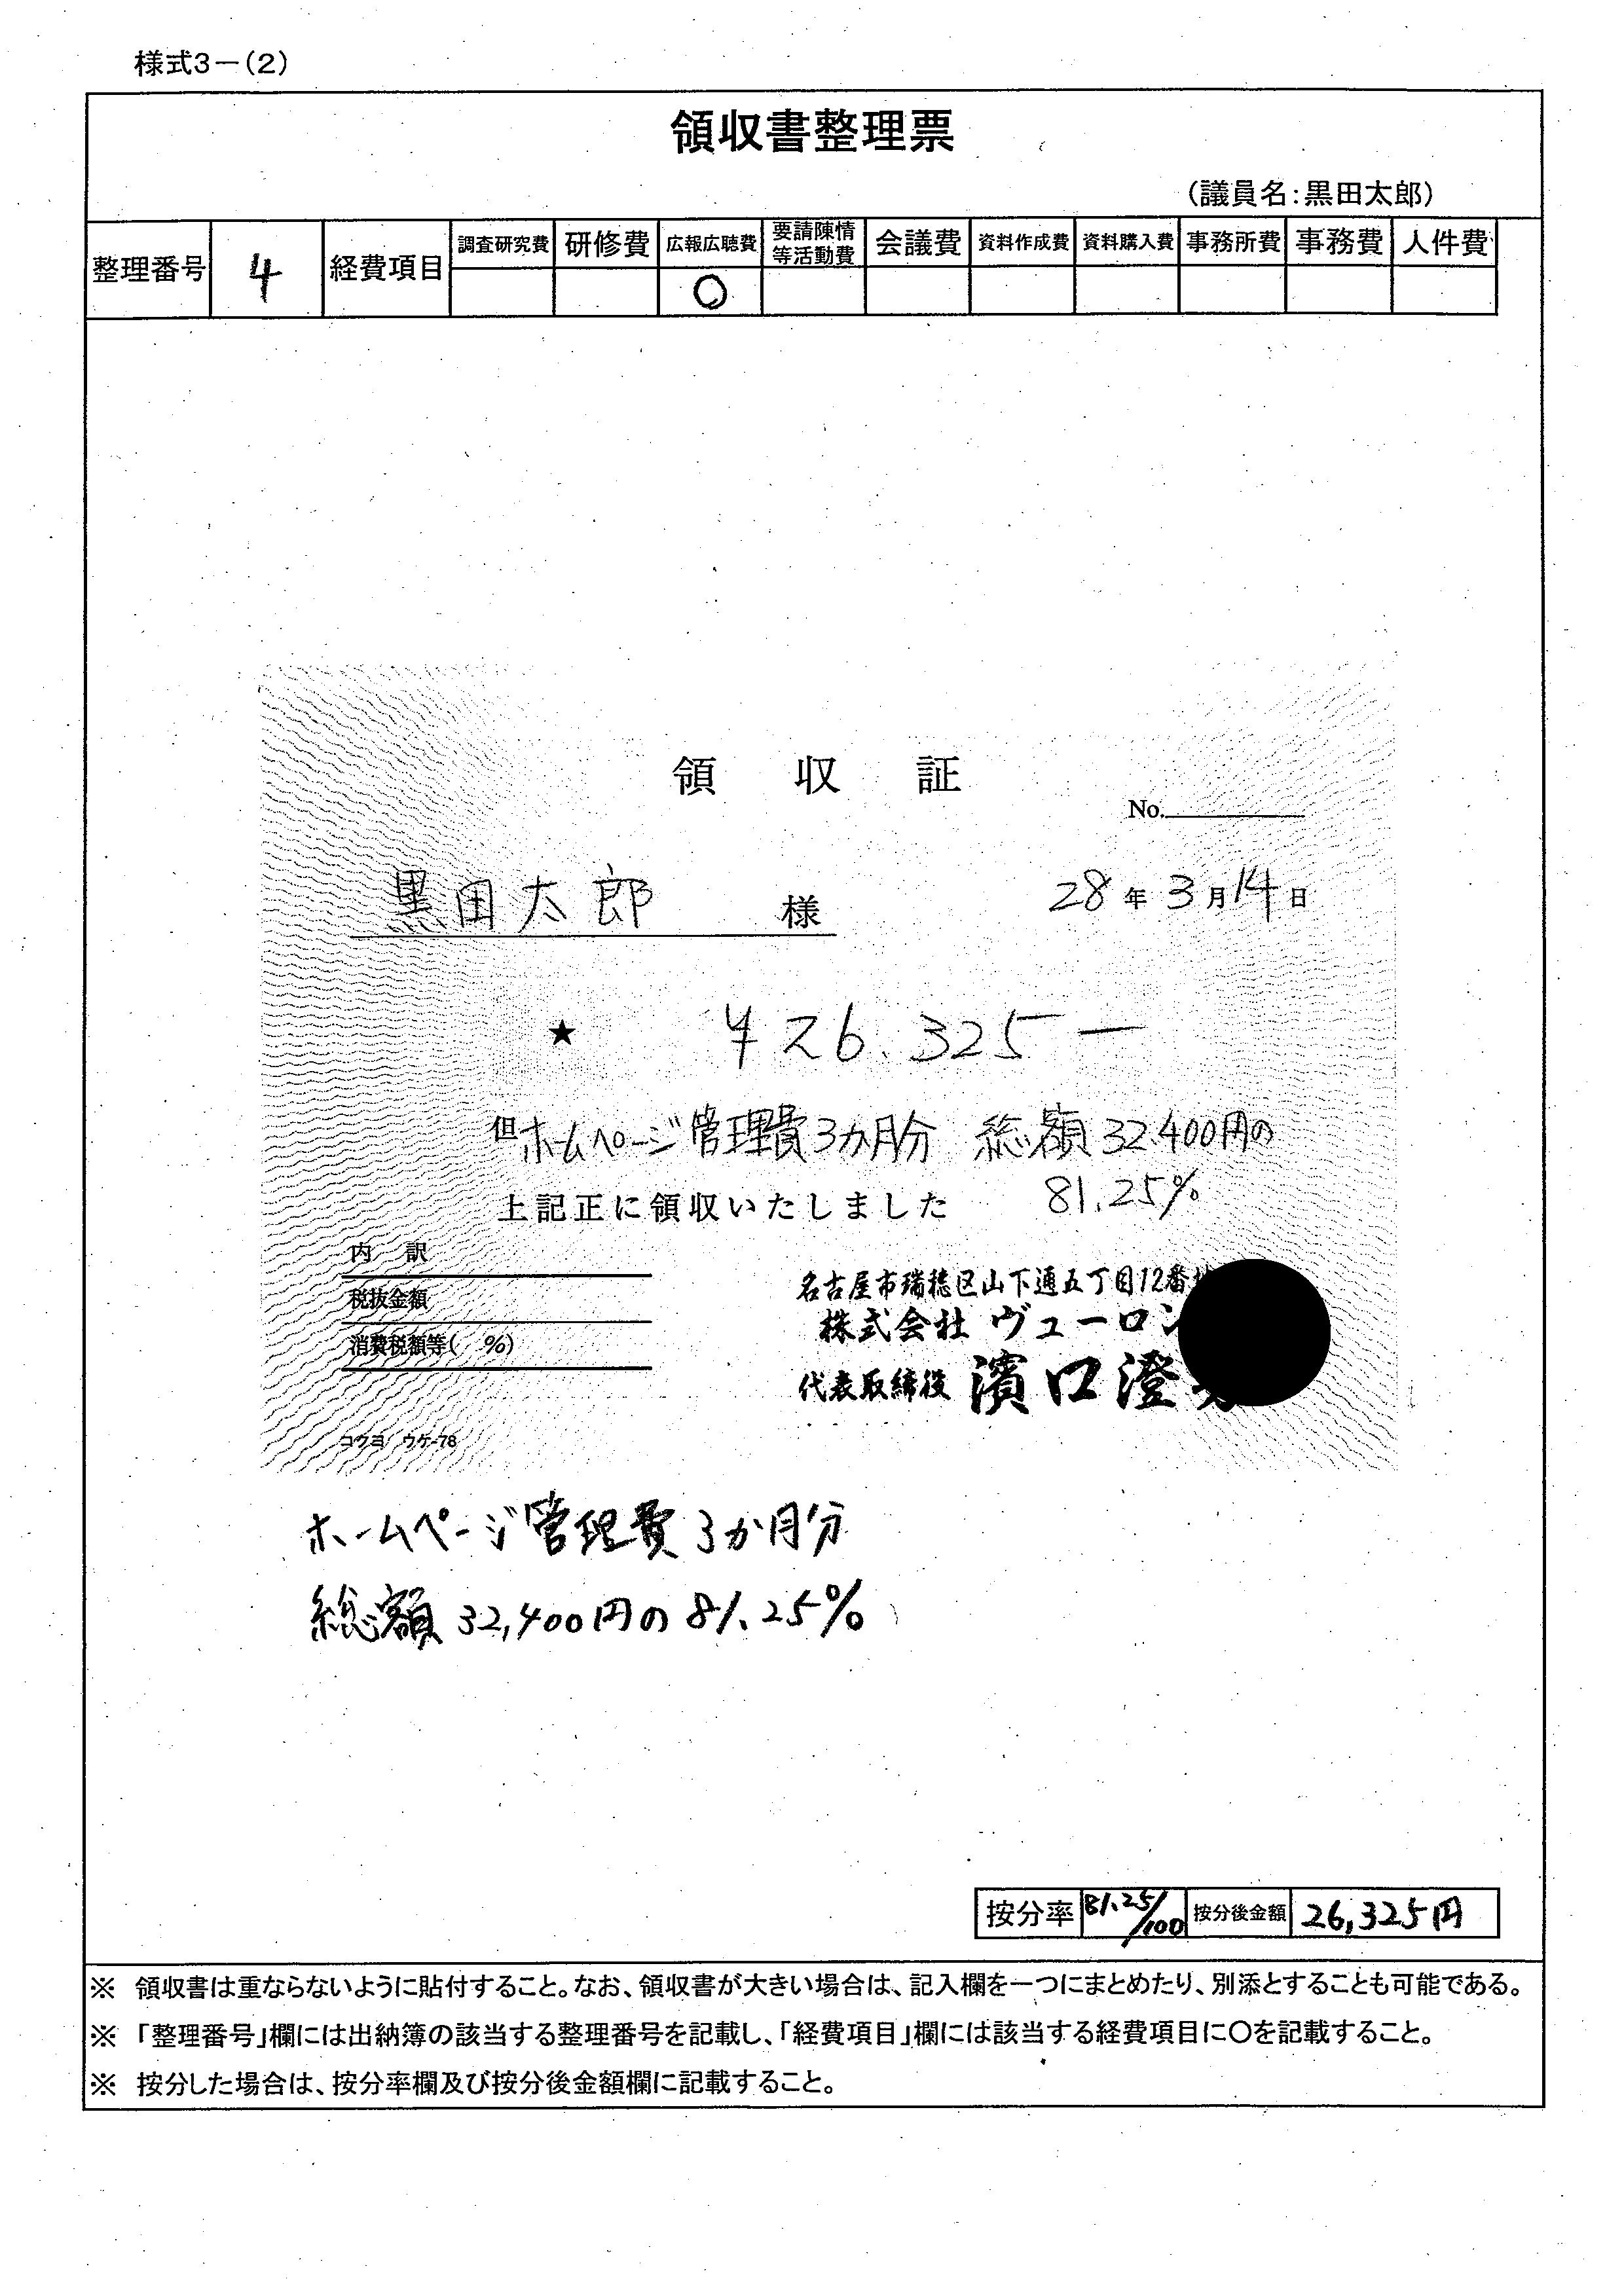 様式3－(2)
領収書整理票
(議員名:黒田太郎)
整理番号 4 経費項目 調査研究費 研修費 広報広聴費 要請陳情等活動費 会議費 資料作成費 資料購入費 事務所費 事務費 人件費
○
領 収 証
No.
黒田太郎 様 28年3月14日
★ ¥26.325－
但ホームページ管理費3カ月分 総額32.400円の
81.25%
上記正に領収いたしました
内 訳
税抜金額
消費税額等( %)
名古屋市瑞穂区山下通五丁目12番
株式会社 ヴューロン
代表取締役 濱口澄
コクヨ ウケ-78
ホームページ管理費3か月分
総額32,400円の81.25%
按分率 81.25/100 按分後金額 26,325円
※ 領収書は重ならないように貼付すること。なお、領収書が大きい場合は、記入欄を一つにまとめたり、別添とすることも可能である。
※ 「整理番号」欄には出納簿の該当する整理番号を記載し、「経費項目」欄には該当する経費項目に○を記載すること。
※ 按分した場合は、按分率欄及び按分後金額欄に記載すること。